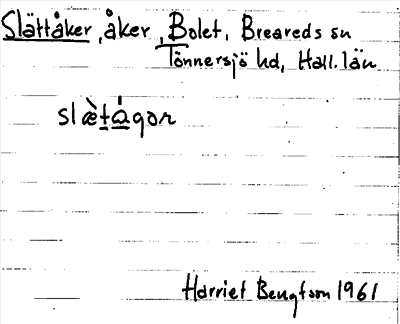 Slättåker, åker, Bolet, Breareds sn
Tönnersjö hd, Hall. län
slæ̀t̠ǻ̠gər
Harriet Bengtson 1961